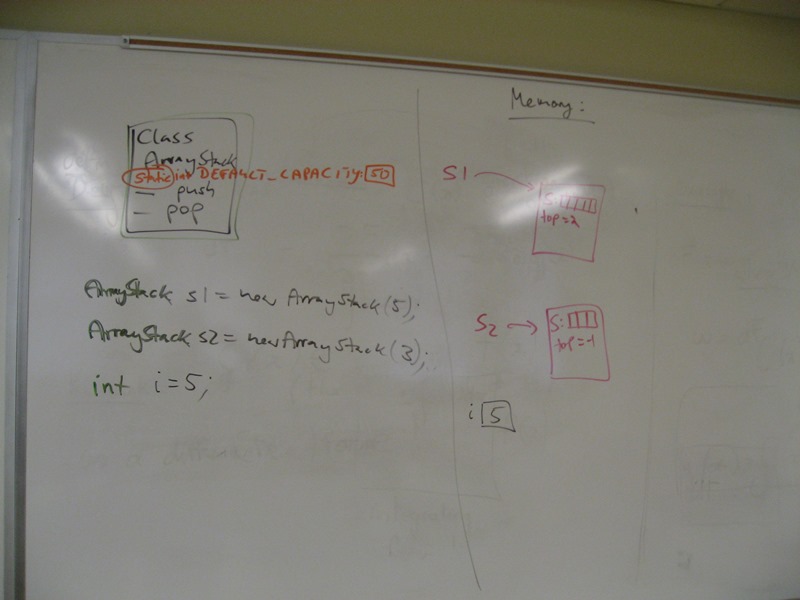 Class
ArrayStack
static int DEFAULT_CAPACITY: 50
— push
— pop
ArrayStack s1 = new ArrayStack(5);
ArrayStack s2 = new ArrayStack(3);
int i=5;
Memory:
S1
S:
top=2
S2
S:
top=-1
i 5